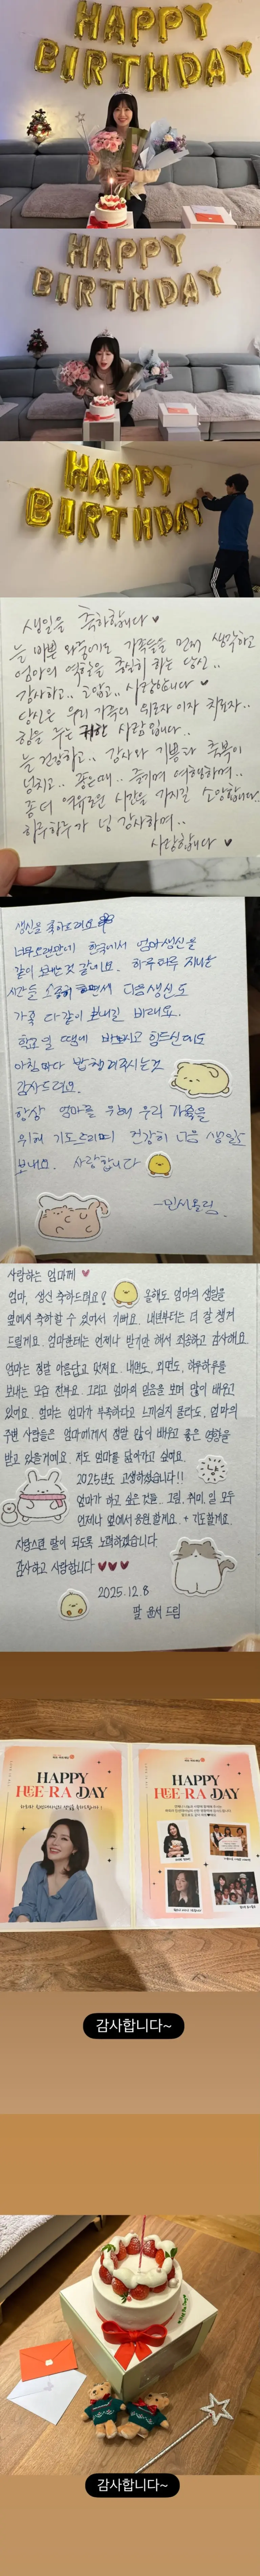 HAPPY
BIRTHDAY
HAPPY
BIRTHDAY
HAPPY
BIRTHDAY
생일을 축하합니다 ♥
늘 바쁜 와중에도 가족들을 먼저 생각하고
엄마의 역할을 충실히 하는 당신..
감사하고.. 고맙고.. 사랑합니다 ♥
당신은 우리 가족의 위로자 이자 치료자..
힘을 주는 귀한 사람입니다..
늘 건강하고.. 감사와 기쁨과 축복이
넘치고.. 좋은때.. 즐기며 여행하며..
좀 더 여유로운 시간을 가지길 소망합니다..
하루하루가 넘 감사하며..
사랑합니다 ♥
생신을 축하드려요
너무 오랜만에 한국에서 엄마 생신을
같이 보내는 것 같네요. 하루하루 지나는
시간들 소중히 하면서 다음 생신도
가족 다같이 보내길 바래요.
학교 일 때문에 바쁘시고 힘드신데도
아침마다 밥 해 주시는것
감사드려요.
항상 엄마를 위해 우리 가족을
위해 기도드리며 건강히 다음 생일도
보내요. 사랑합니다
사랑하는 엄마께 ♥
엄마, 생신 축하드려요! 올해도 엄마의 생일을
옆에서 축하할 수 있어서 기뻐요. 내년부터는 더 잘 챙겨
드릴게요. 엄마한테는 언제나 받기만 해서 죄송하고 감사해요.
엄마는 정말 아름답고 멋져요. 내면도, 외면도, 하루하루를
보내는 모습 전부요. 그리고 엄마의 믿음을 보며 많이 배우고
있어요. 엄마는 엄마가 부족하다고 느끼실지 몰라도, 엄마의
주변 사람들은 엄마에게서 정말 많이 배우고 좋은 영향을
받고 있을거예요. 저도 엄마를 닮아가고 싶어요.
2025년도 고생하셨습니다!!
엄마가 하고 싶은 것들.. 그림, 취미, 일 모두
언제나 옆에서 응원할게요. + 기도할게요.
자랑스런 딸이 되도록 노력하겠습니다.
감사하고 사랑합니다 ♥♥♥
2025.12.8
딸 윤서 드림
HAPPY
HEE·RA DAY
HAPPY
HEE·RA DAY
감사합니다~
감사합니다~